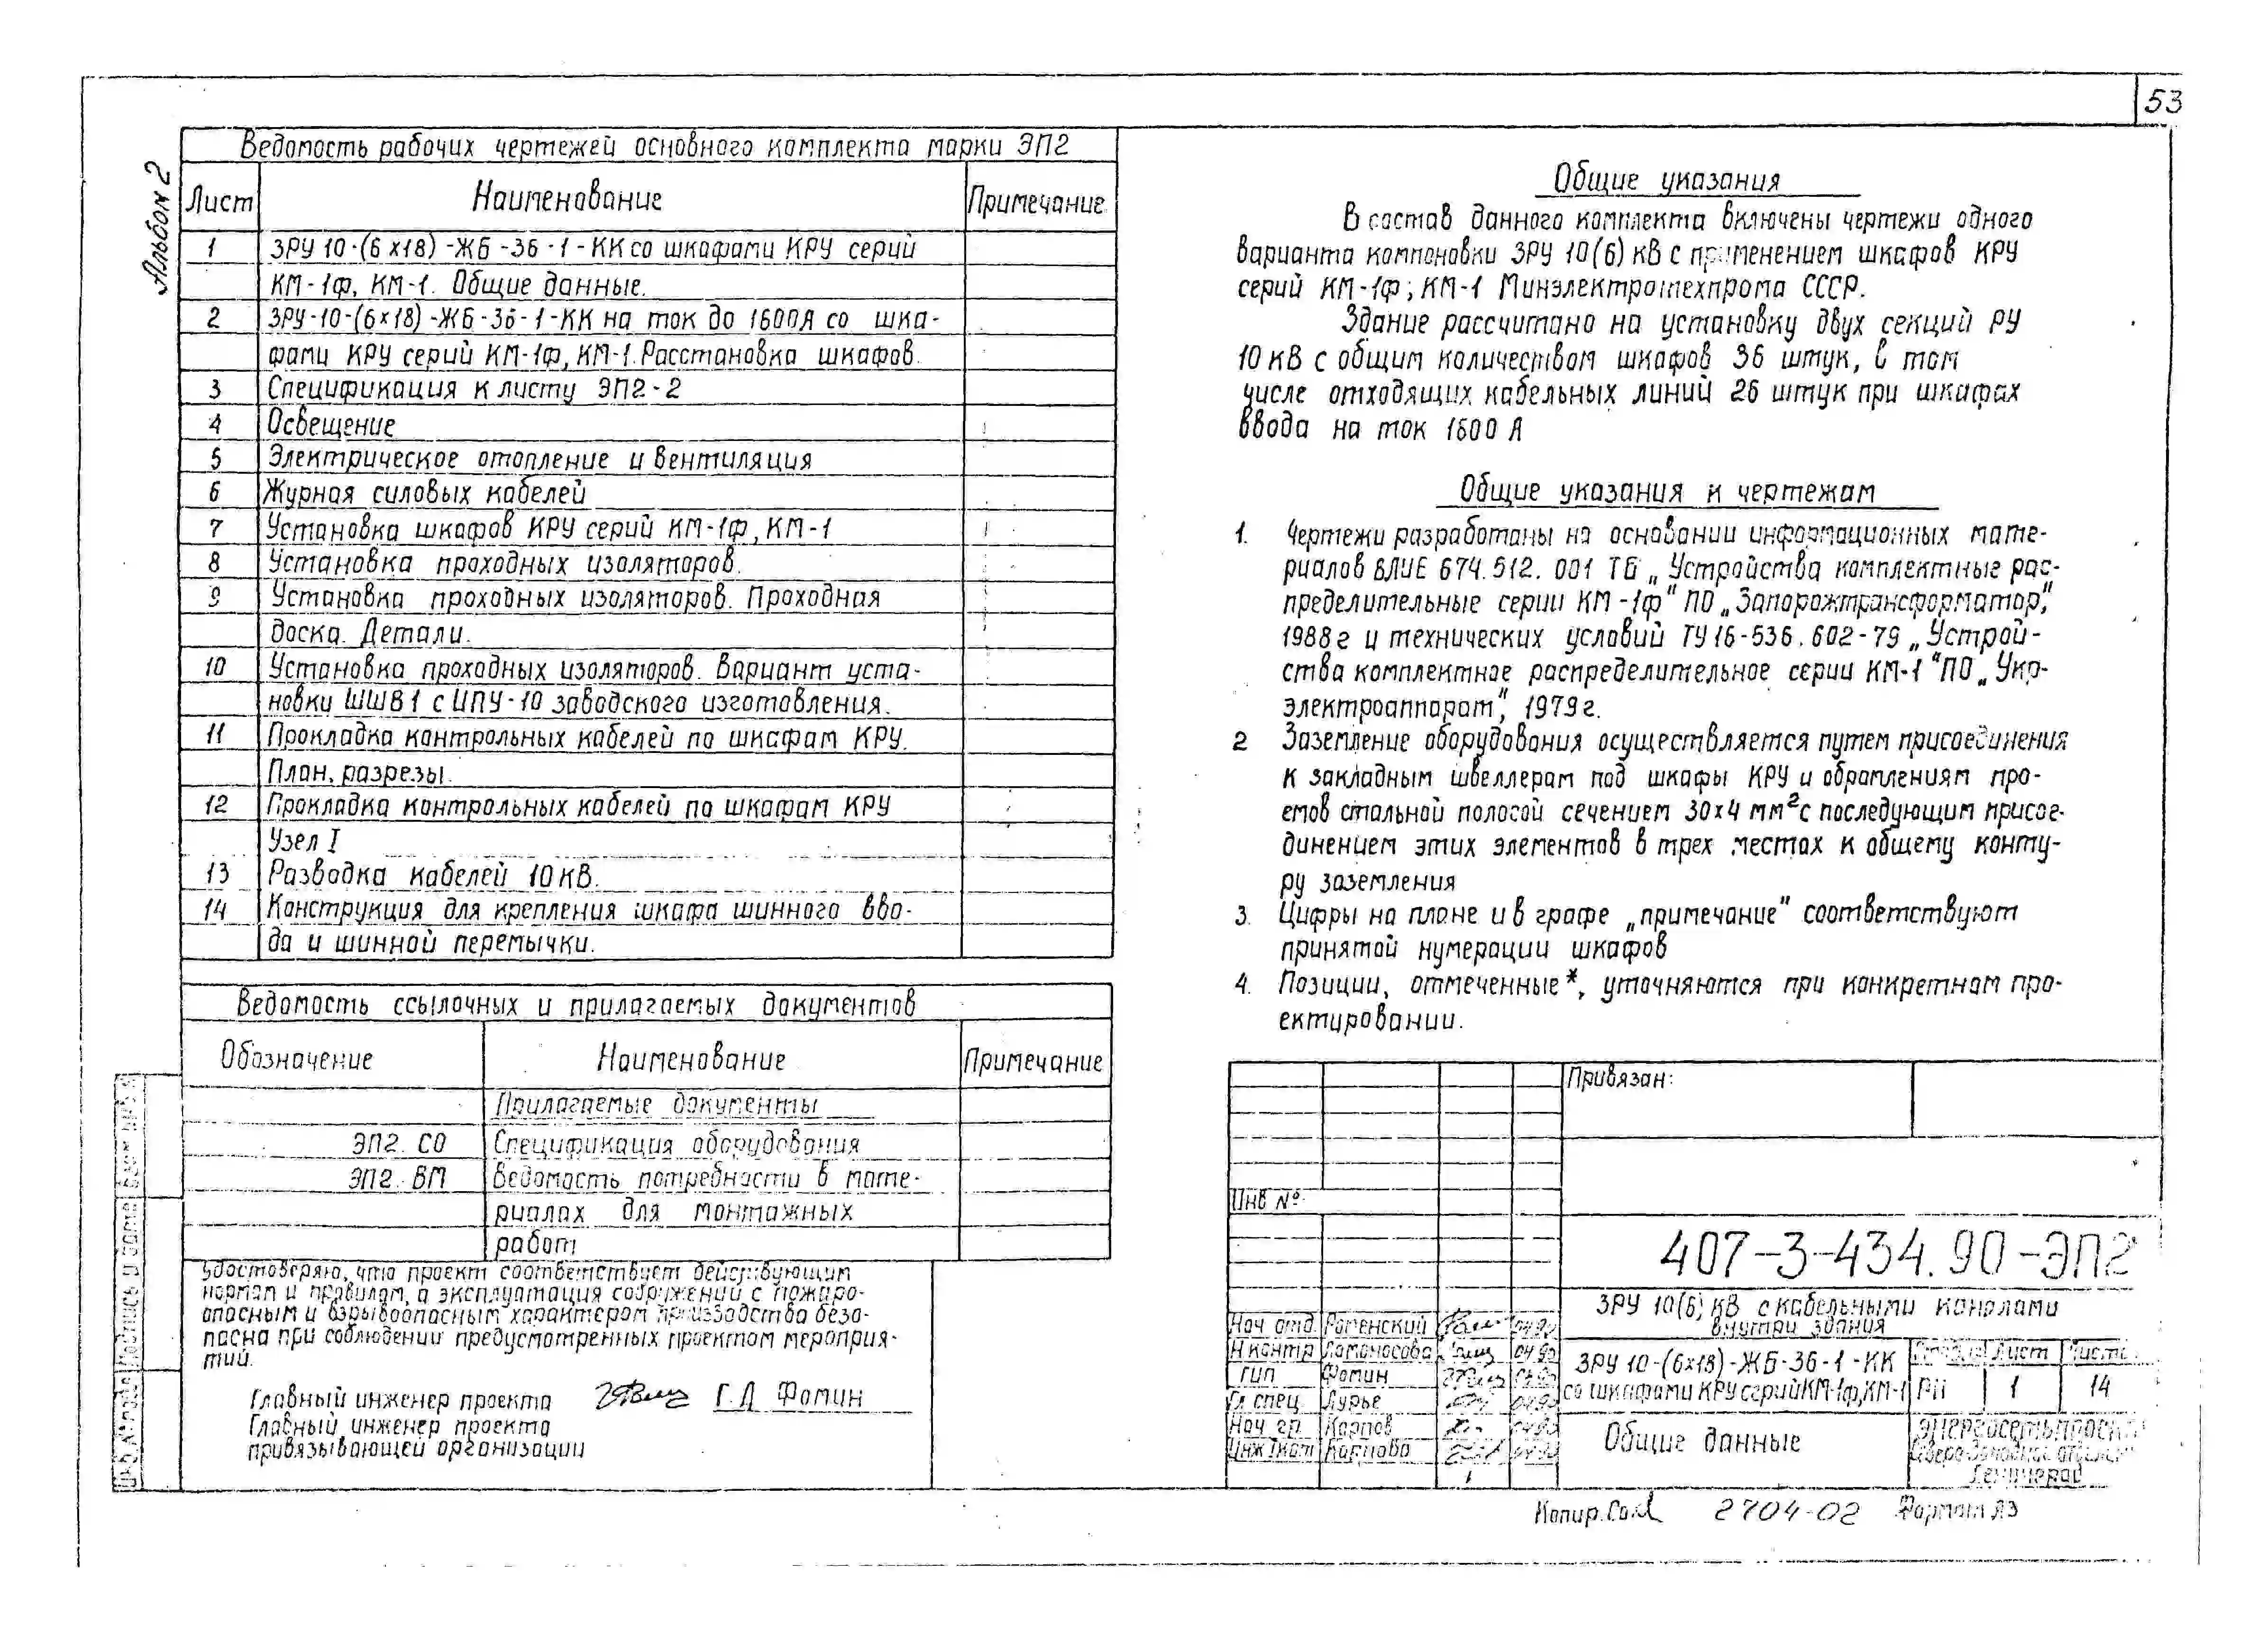 53
Альбом 2
Ведомость рабочих чертежей основного комплекта марки ЭП2
Лист Наименование Примечание
1 ЗРУ 10-(6х18)-ЖБ-36-1-КК со шкафами КРУ серий
КМ-1ф, КМ-1. Общие данные.
2 ЗРУ-10-(6х18)-ЖБ-36-1-КК на ток до 1600А со шка-
фами КРУ серий КМ-1ф, КМ-1. Расстановка шкафов.
3 Спецификация к листу ЭП2-2
4 Освещение
5 Электрическое отопление и вентиляция
6 Журнал силовых кабелей
7 Установка шкафов КРУ серий КМ-1ф, КМ-1
8 Установка проходных изоляторов.
9 Установка проходных изоляторов. Проходная
доска. Детали.
10 Установка проходных изоляторов. Вариант уста-
новки ШШВ1 с ИПУ-10 заводского изготовления.
11 Прокладка контрольных кабелей по шкафам КРУ.
План, разрезы.
12 Прокладка контрольных кабелей по шкафам КРУ
Узел I
13 Разводка кабелей 10 кВ.
14 Конструкция для крепления шкафа шинного вво-
да и шинной перемычки.
Ведомость ссылочных и прилагаемых документов
Обозначение Наименование Примечание
Прилагаемые документы
ЭП2. СО Спецификация оборудования
ЭП2. ВМ Ведомость потребности в мате-
риалах для монтажных
работ
Удостоверяю, что проект соответствует действующим
нормам и правилам, а эксплуатация сооружений с пожаро-
опасным и взрывоопасным характером производства безо-
пасна при соблюдении предусмотренных проектом мероприя-
тий.
Главный инженер проекта Г.Д Фомин
Главный инженер проекта
привязывающей организации
Общие указания
В состав данного комплекта включены чертежи одного
варианта компоновки ЗРУ 10(6) кВ с применением шкафов КРУ
серий КМ-1ф; КМ-1 Минэлектротехпрома СССР.
Здание рассчитано на установку двух секций РУ
10 кВ с общим количеством шкафов 36 штук, в том
числе отходящих кабельных линий 26 штук при шкафах
ввода на ток 1600 А
Общие указания к чертежам
1. Чертежи разработаны на основании информационных мате-
риалов ВЛИЕ 674.512. 001 ТБ „Устройства комплектные рас-
пределительные серии КМ-1ф" ПО „Запорожтрансформатор",
1988г и технических условий ТУ 16-536.602-79 „Устрой-
ства комплектное распределительное серии КМ-1" ПО „Укр-
электроаппарат", 1979г.
2 Заземление оборудования осуществляется путем присоединения
к закладным швеллерам под шкафы КРУ и обрамлениям про-
емов стальной полосой сечением 30х4 мм² с последующим присое-
динением этих элементов в трех местах к общему конту-
ру заземления
3. Цифры на плане и в графе „примечание" соответствуют
принятой нумерации шкафов
4. Позиции, отмеченные *, уточняются при конкретном про-
ектировании.
Привязан:
Инв №
407-3-434.90-ЭП2
ЗРУ 10(6) кВ с кабельными каналами
внутри здания
Нач отд. Роменский 04.90
Н контр Ломоносова 04.90
ГИП Фомин 04.90
Гл спец Лурье 04.90
Нач гр. Карпов 04.90
Инж Iкат Карпова 04.90
ЗРУ 10-(6х18)-ЖБ-36-1-КК
со шкафами КРУ серий КМ-1ф, КМ-1
Стадия Лист Листов
РП 1 14
Общие данные
Энергосетьпроект
Северо-Западное отделение
Ленинград
Копир. 2704-02 Формат А3